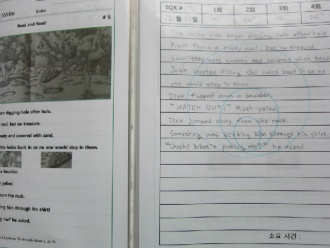 Write
Date
Read and Read!
# 5
digging hole after hole.
nail, but no treasure.
and covered with sand.
the holes back in so no one would step in them.
a boulder.
yelled.
the rock.
him through his shirt!
me? he asked.
SQR #
1회
2회
3회
4회
월 일
The three kids began digging hole after hole.
found a rusty nail, but no treasure.
Soon they were sweaty and covered with sand.
Josh started filling the holes back in so no
one would step in them.
Dink flopped down a boulder.
"WATCH OUT!" Ruth yelled.
Dink jumped away from the rock.
Something was poking him through his shirt.
"Ouch! What's poking me?" he asked.
소요 시간 :